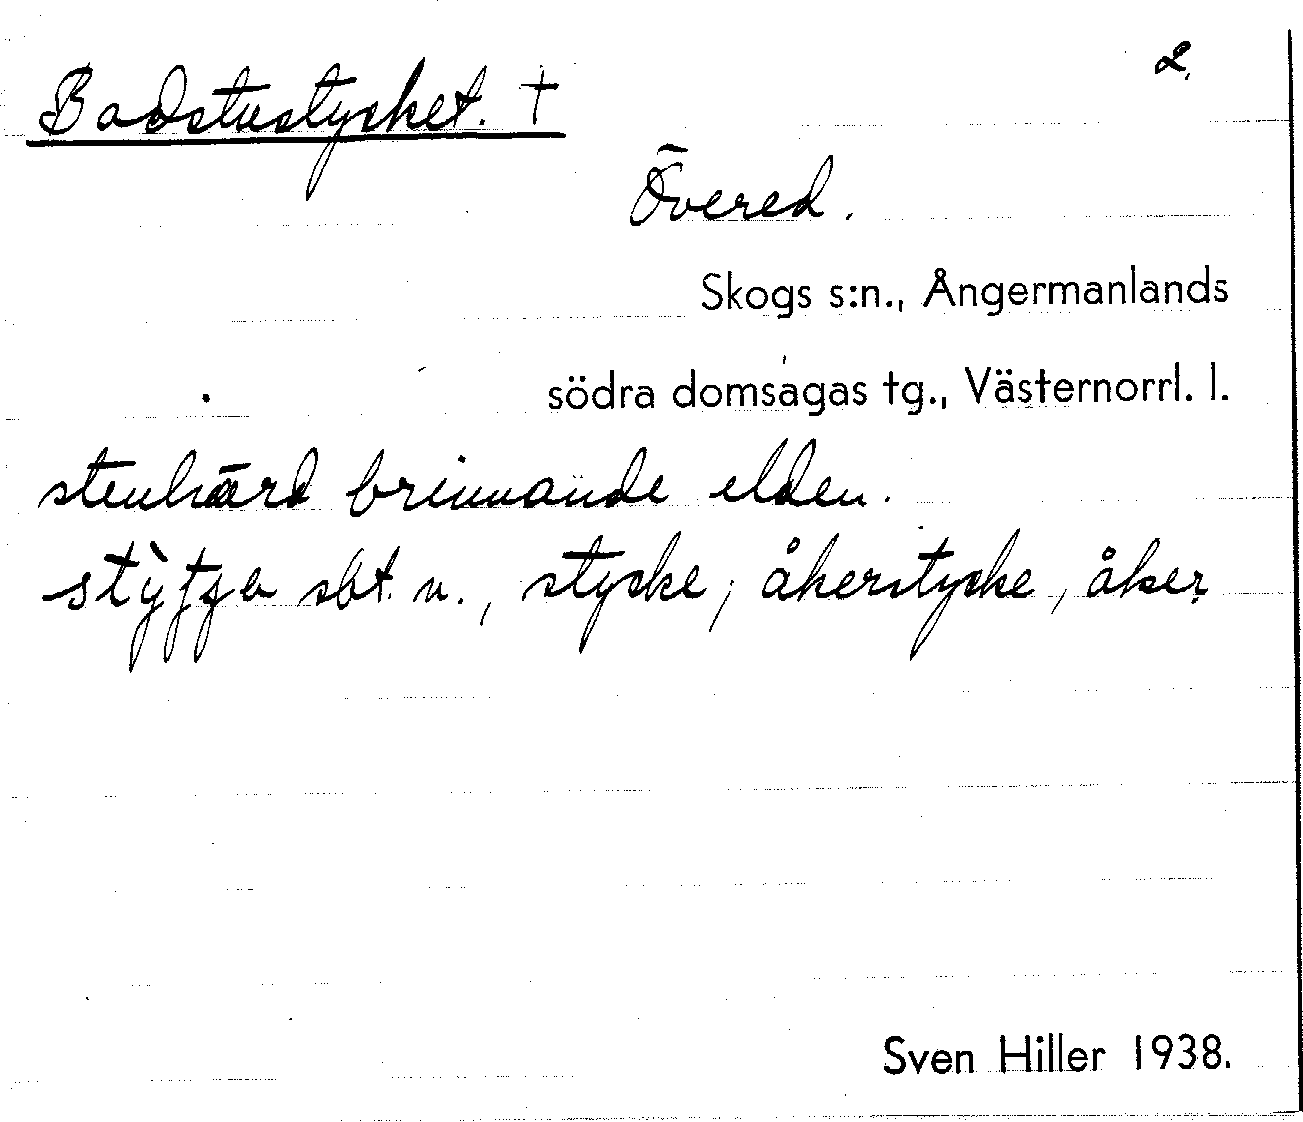 2.
Badstustycket. †
Övered.
Skogs s:n., Ångermanlands
södra domsagas tg., Västernorrl. l.
stenhärd brinnande elden.
sbt. n., stycke; åkerstycke, åker
Sven Hiller 1938.